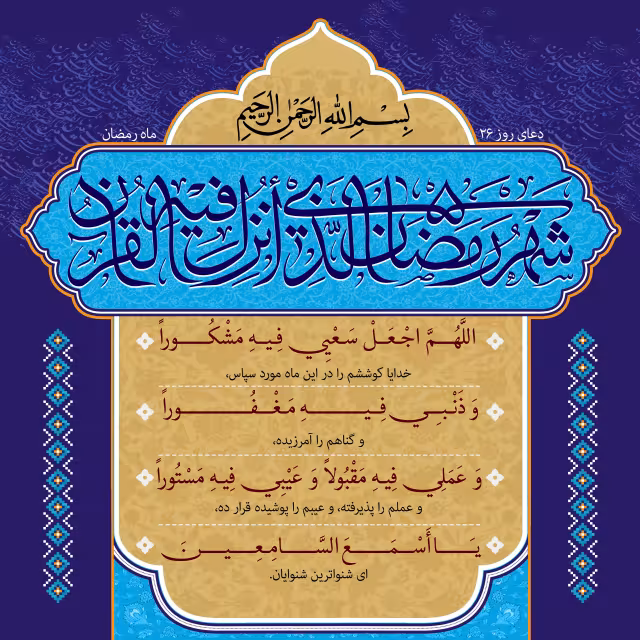 بِسْمِ اللهِ الرَّحْمٰنِ الرَّحِيمِ
دعای روز ۲۶
ماه رمضان
شَهْرُ رَمَضانَ الَّذِي أُنْزِلَ فِيهِ القُرْآن
اللَّهُمَّ اجْعَلْ سَعْيِي فِيهِ مَشْكُوراً
خدایا کوششم را در این ماه مورد سپاس،
وَ ذَنْبِي فِيهِ مَغْفُوراً
و گناهم را آمرزیده،
وَ عَمَلِي فِيهِ مَقْبُولاً وَ عَيْبِي فِيهِ مَسْتُوراً
و عملم را پذیرفته، و عیبم را پوشیده قرار ده،
يَا أَسْمَعَ السَّامِعِينَ
ای شنواترین شنوایان.